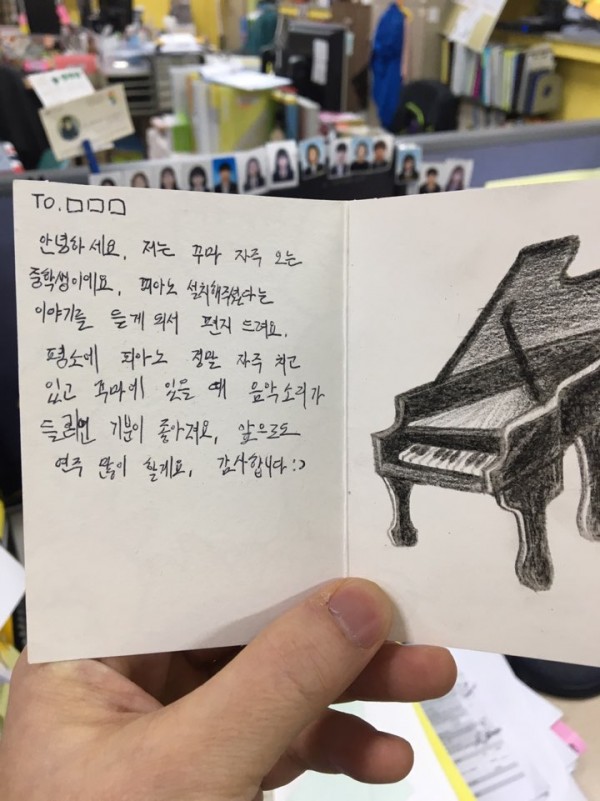 TO. □□□
안녕하세요, 저는 꾸마 자주 오는
중학생이에요. 피아노 설치해주셨다는
이야기를 듣게 되서 편지 드려요.
평소에 피아노 정말 자주 치고
있고 꾸마에 있을 때 음악소리가
들리면 기분이 좋아져요, 앞으로도
연주 많이 할게요, 감사합니다 :)